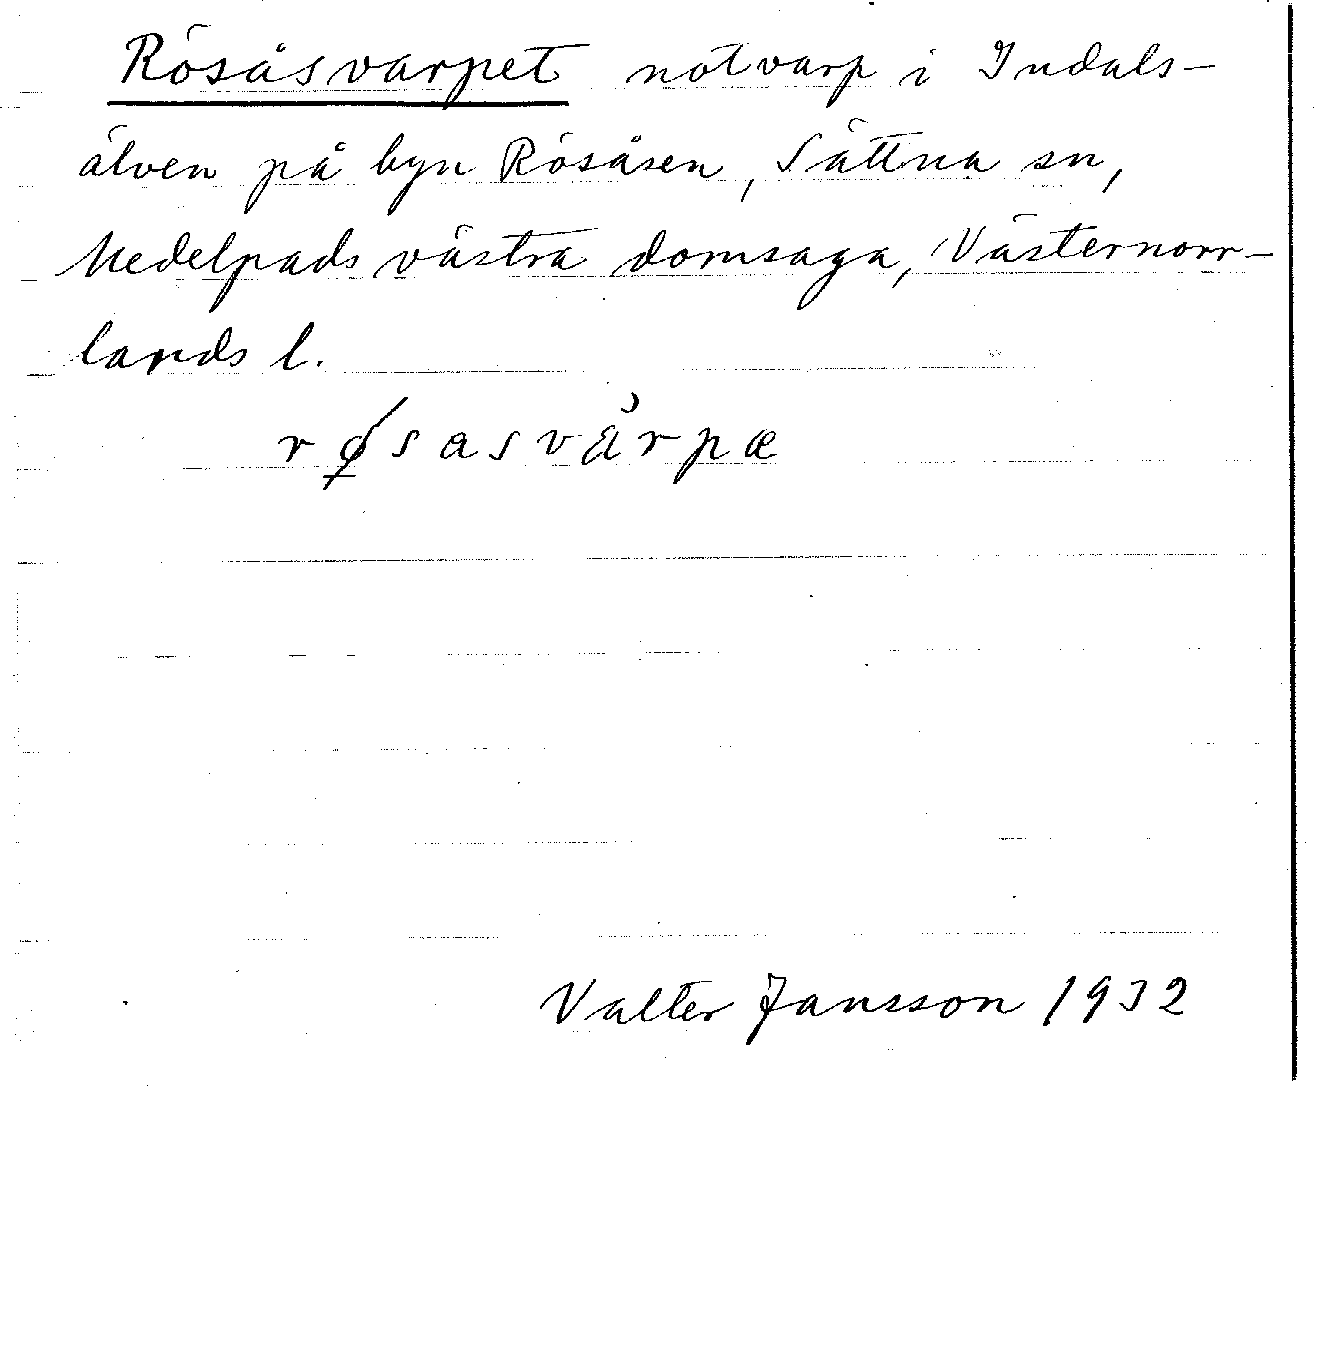 Rösåsvarpet notvarp i Indals-
älven på byn Rösåsen, Sättna sn,
Medelpads västra domsaga, Västernorr-
lands l.
rǿ̱sasvårpæ
Valter Jansson 1932